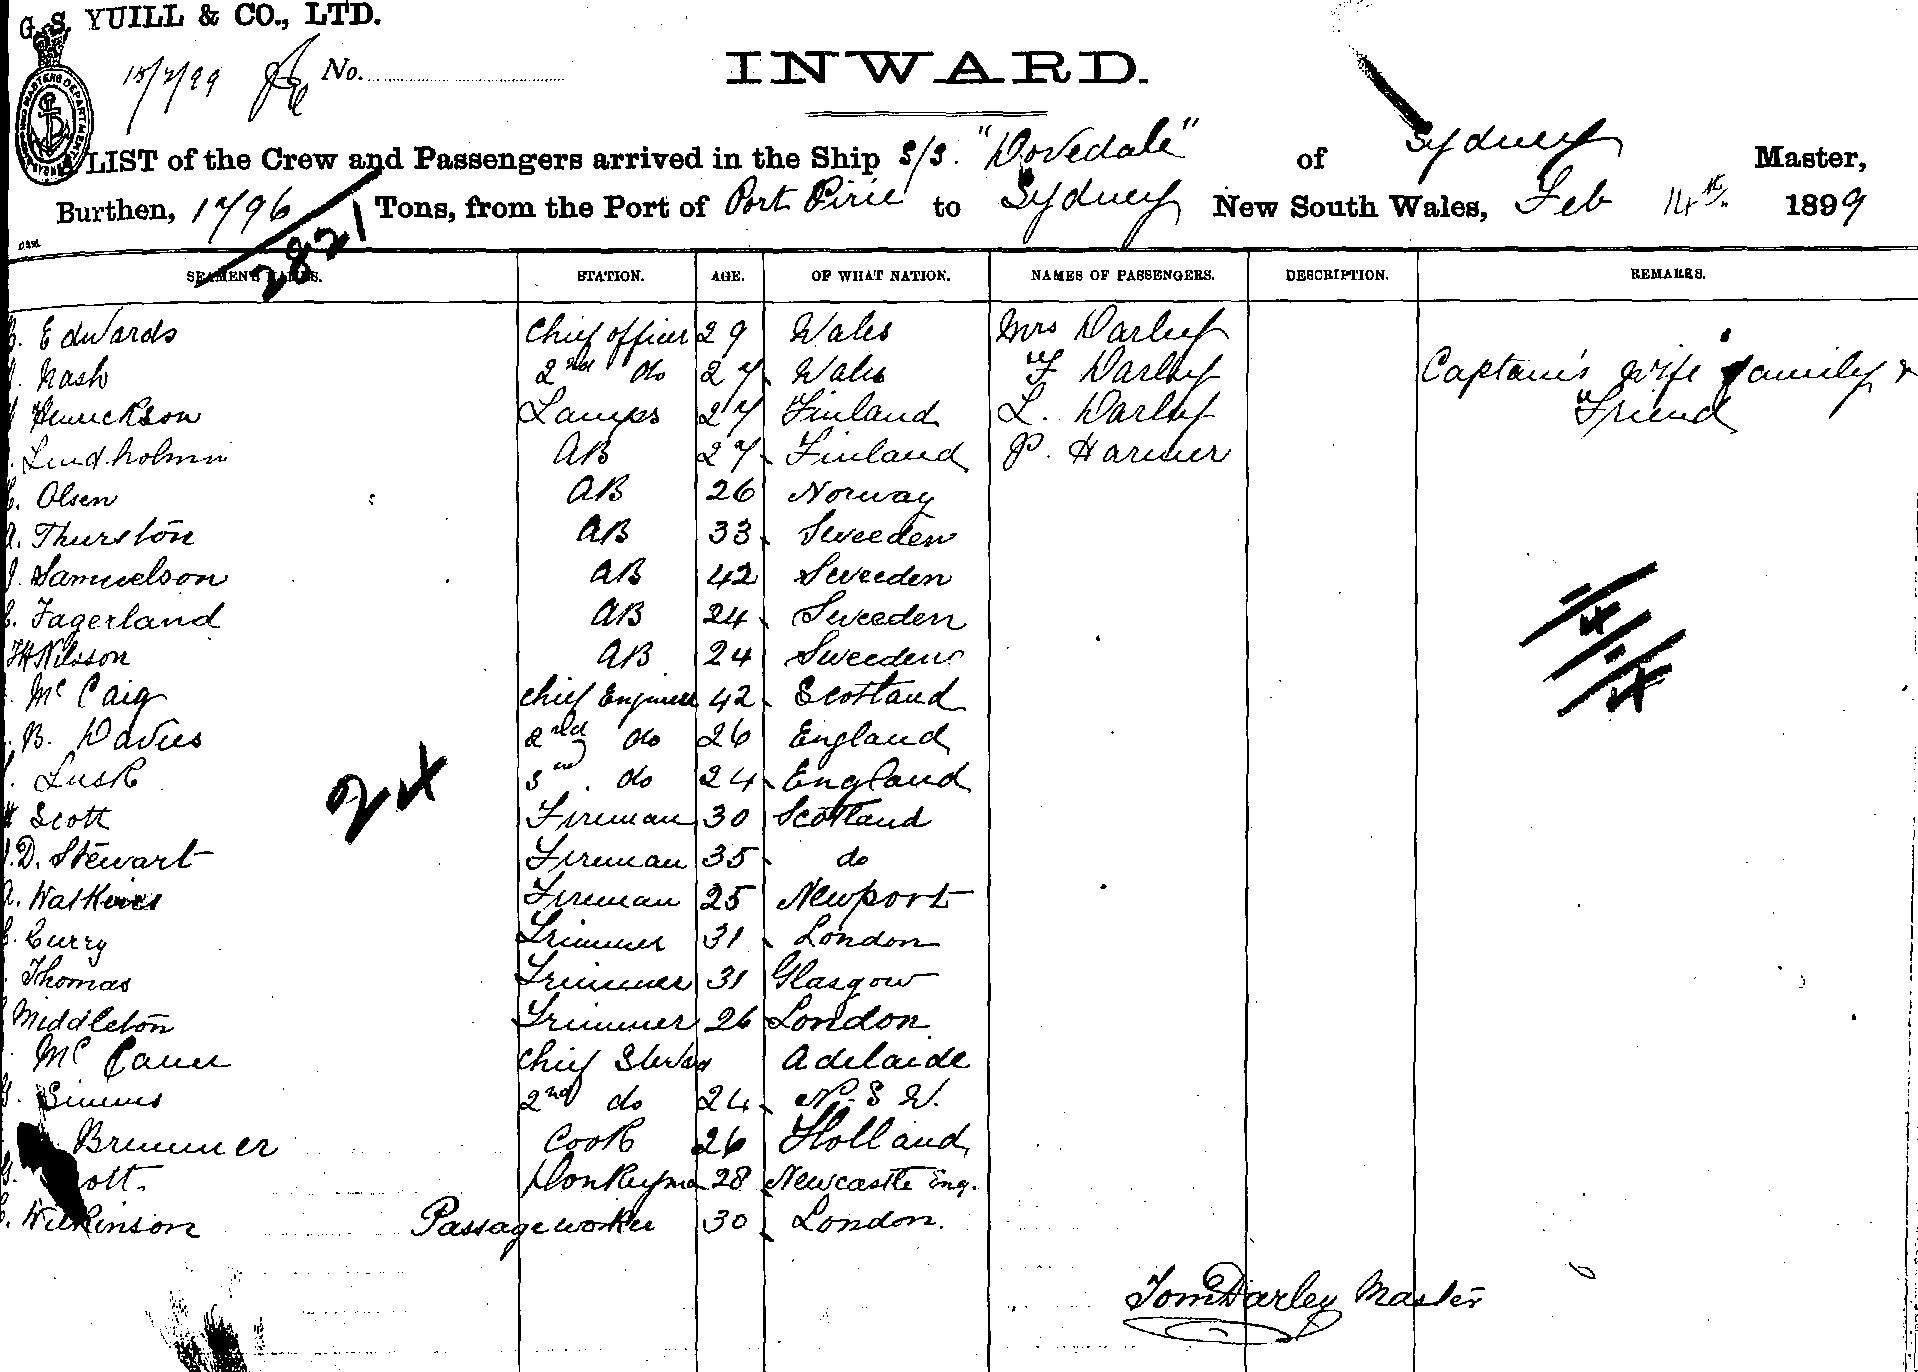 G. S. YUILL & CO., LTD.
15/2/99 No.
INWARD.
LIST of the Crew and Passengers arrived in the Ship S/S. "Dovedale" of Sydney Master,
Burthen, 1796 Tons, from the Port of Port Pirie to Sydney New South Wales, Feb 14th. 1899
2821
SEAMEN'S NAMES. STATION. AGE. OF WHAT NATION. NAMES OF PASSENGERS. DESCRIPTION. REMARKS.
Edwards Chief officer 29 Wales Mrs Darley
Nash 2nd do 27 Wales F Darley Captain's wife family &
Henrickson Lamps 27 Finland L. Darley Friend
Lindholm AB 27 Finland P. Harmer
Olsen AB 26 Norway
A. Thurston AB 33 Sweeden
J. Samuelson AB 42 Sweeden
Fagerland AB 24 Sweeden
Nilsson AB 24 Sweeden
Mc Caig Chief Engineer 42 Scotland
B. Davies 2nd do 26 England
Lusk 3rd do 24 England
24
Scott Fireman 30 Scotland
D. Stewart Fireman 35 do
A. Watkins Fireman 25 Newport
Curry Trimmer 31 London
Thomas Trimmer 31 Glasgow
Middleton Trimmer 26 London
Mc Chief Steward Adelaide
Simms 2nd do 24 N. S W.
Brummer Cook 26 Holland
ott. Donkeyman 28 Newcastle Eng.
Wilkinson Passage worker 30 London.
Tom Darley Master